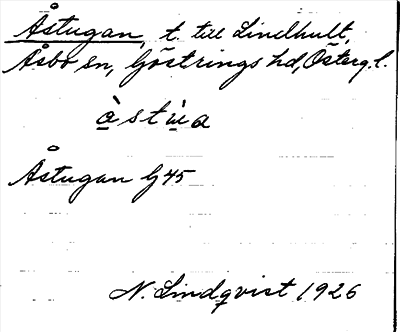 Åstugan, t. till Lindhult,
Åsbo sn, Göstrings hd, Österg. l.
à s t ù a
Åstugan G 45
N. Lindqvist 1926